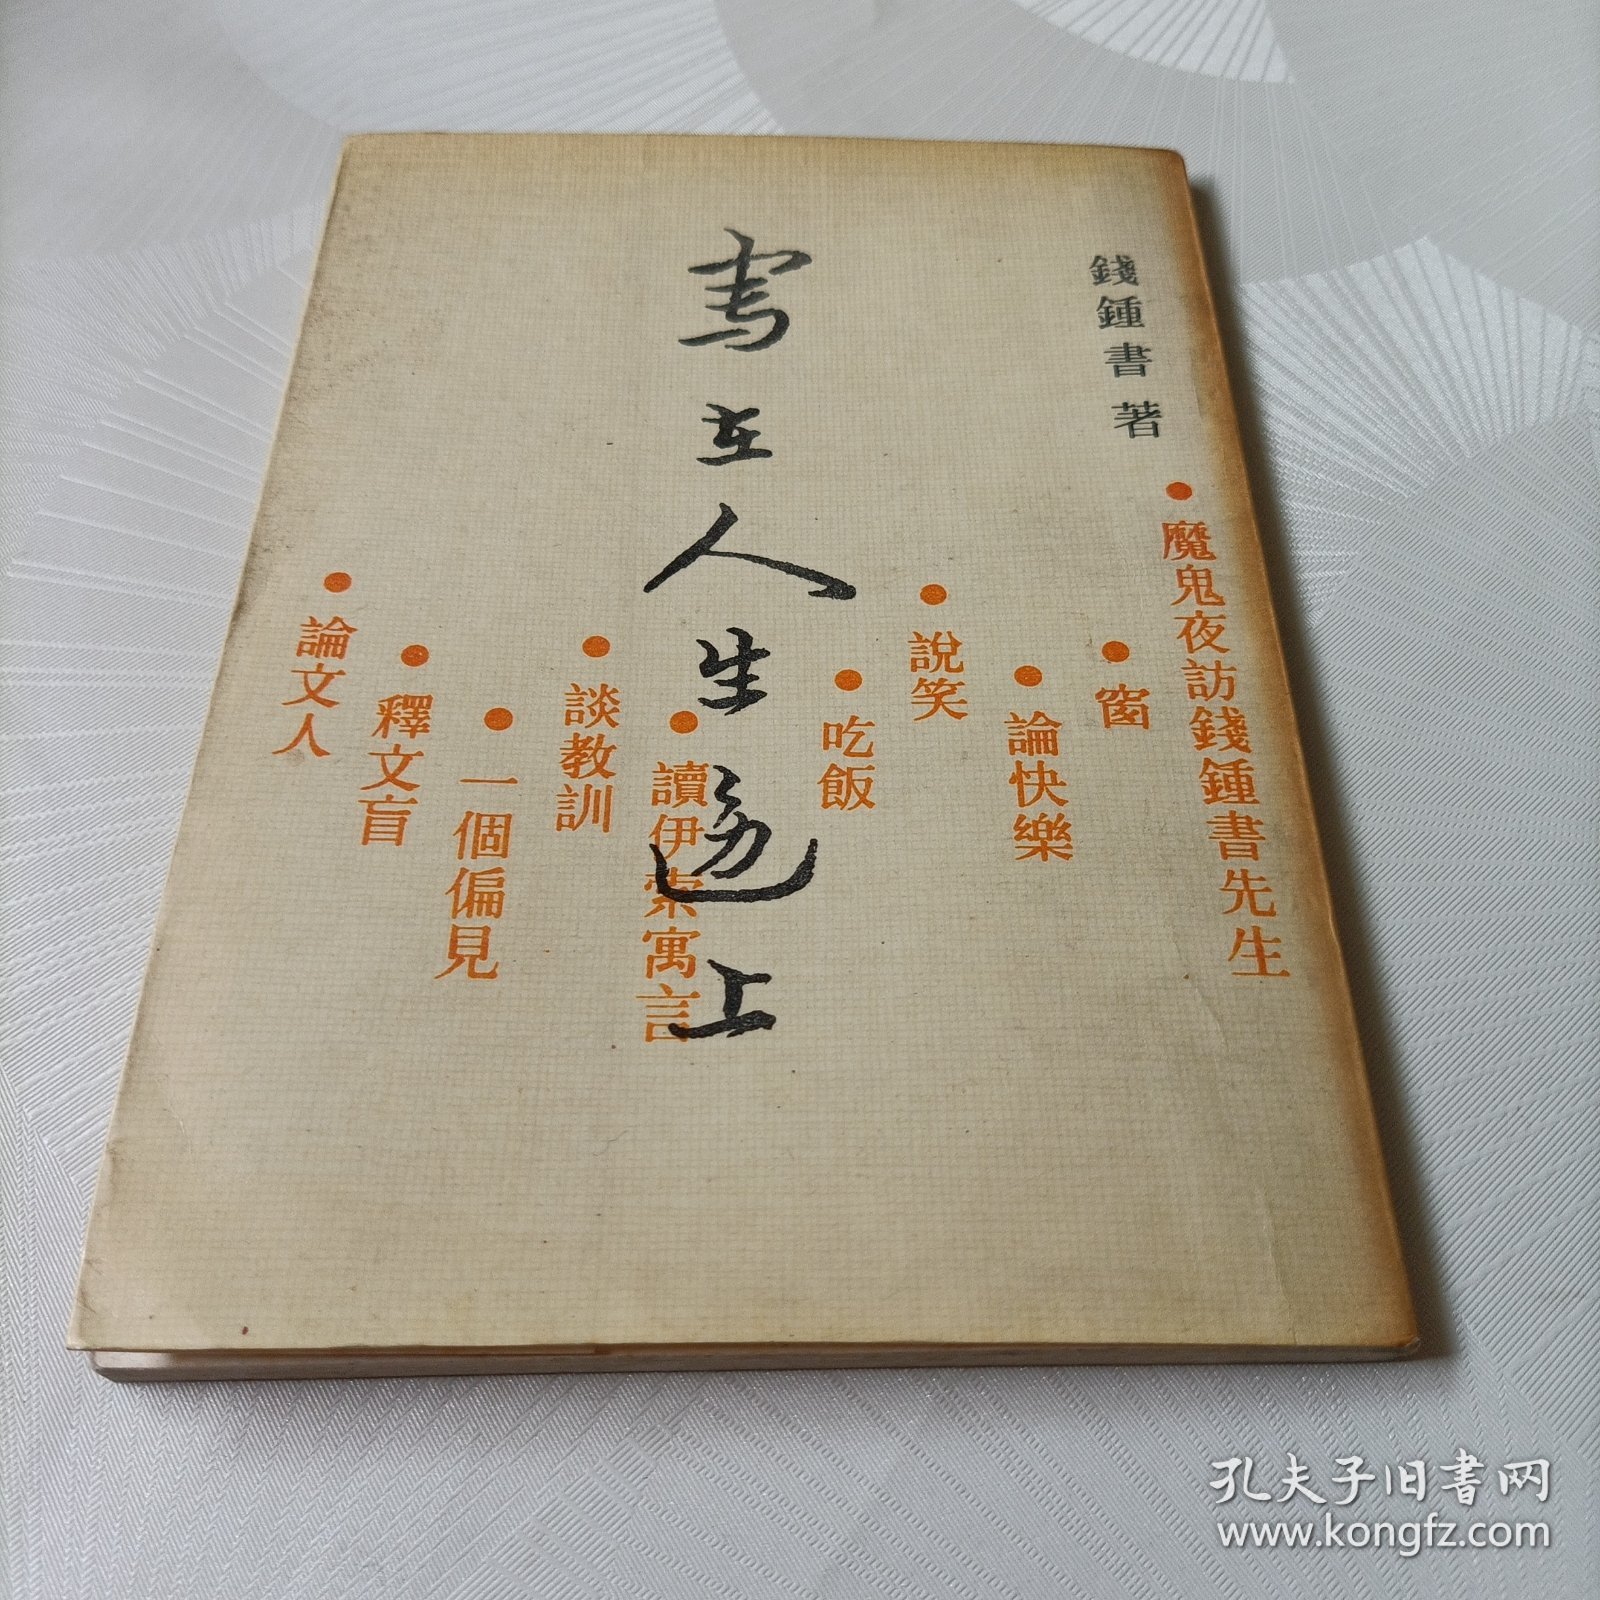 錢鍾書著
寫在人生邊上
魔鬼夜訪錢鍾書先生
窗
論快樂
說笑
吃飯
讀伊索寓言
談教訓
一個偏見
釋文盲
論文人
孔夫子旧书网
www.kongfz.com